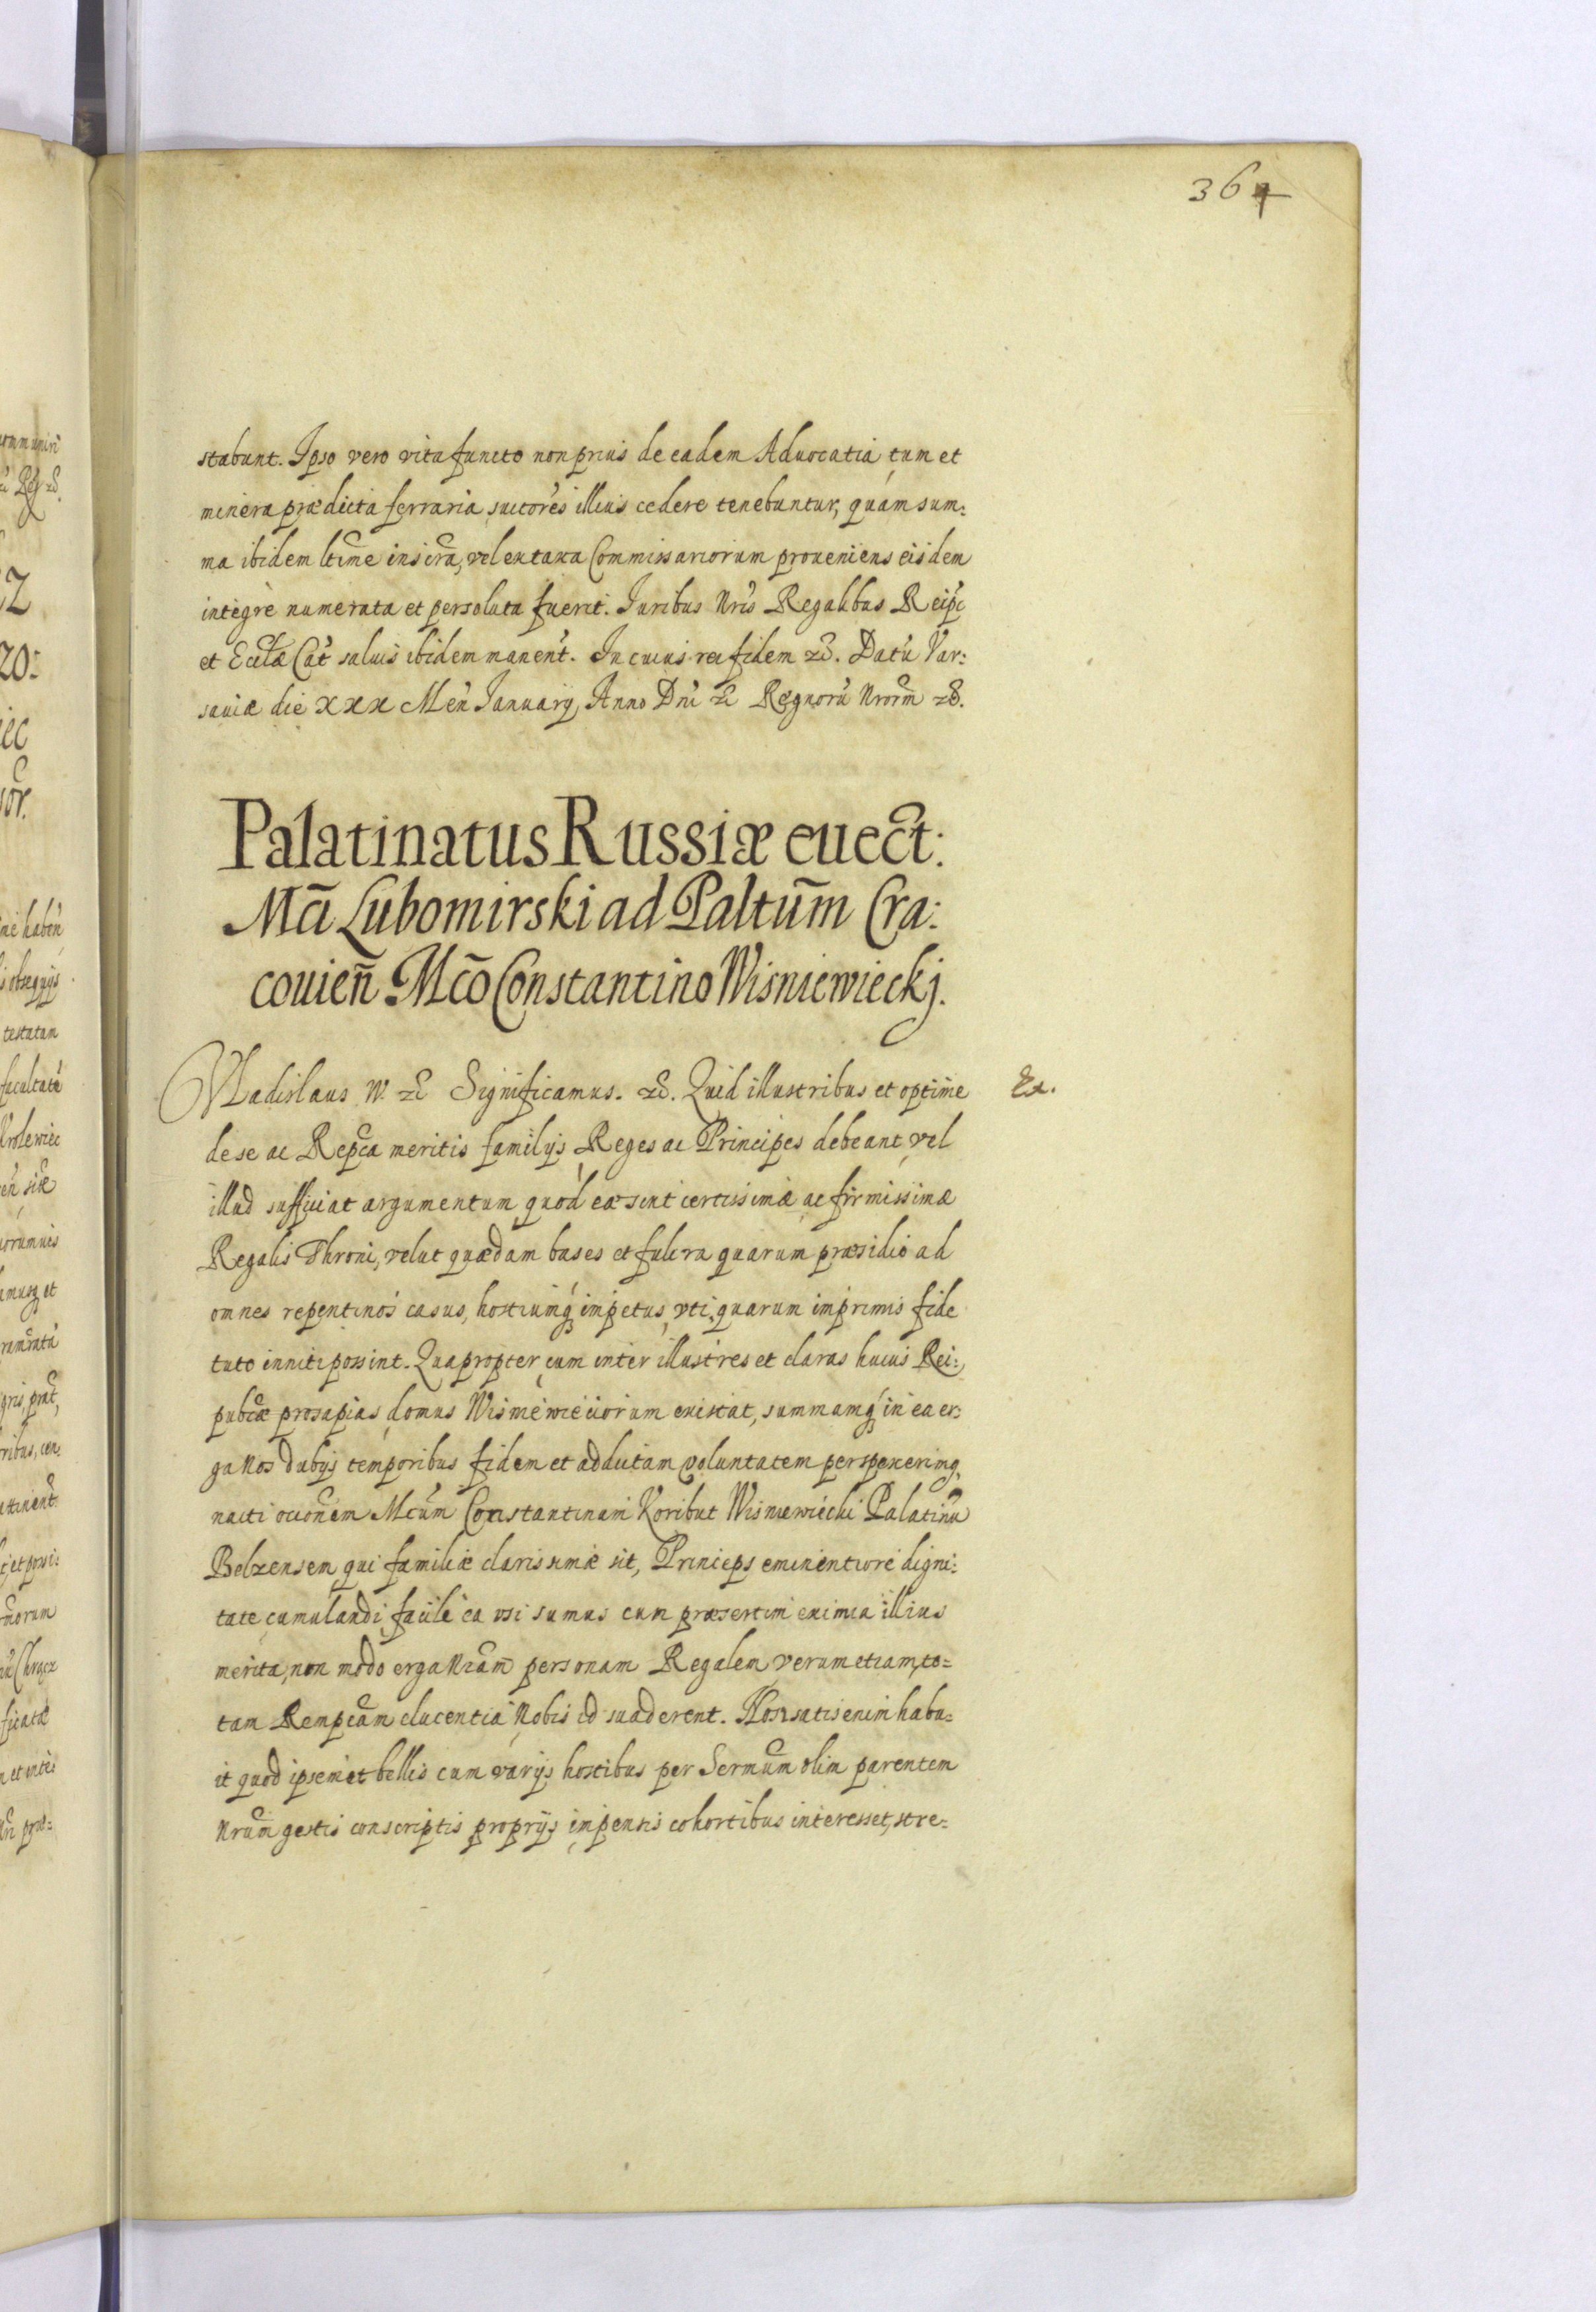 364
stabunt. Ipso vero vita functo non prius de eadem Aduocatia, tum et
minera prædicta ferraria, suctores illius cedere tenebuntur, quàm sum:
ma ibidem ltime inscra, vel ex taxa Commissariorum proueniens eisdem
integrè numerata et persoluta fuerit. Iuribus Nris Regalibus Reipc
et Ecclæ Cat saluis ibidem manent. In cuius rei fidem &c. Datu Var:
sauiæ die XXX Men Ianuarij Anno Dni &c Regnoru Nrorm &c.
Palatinatus Russiæ euect:
Mci Lubomirski ad Paltum̄ Cra:
couien̄. Mco Constantino Wisniewieckj.
Vladislaus IV. &c Significamus. &c. Quid illustribus et optime
Ex.
de se ac Repca meritis familijs Reges ac Principes debeant, vel
illud sufficiat argumentum, quod eæ sint certissimæ ac firmissimæ
Regalis Throni, velut quædam bases et fulcra quarum præsidio ad
omnes repentinos casus, hostiumq impetus, vti quarum imprimis fide
tuto inniti possint. Quapropter, cum inter illustres et claras huius Rei:
pubcæ prosapias, domus Wisniewieciorum existat, summamq in ea er:
ga Nos dubijs temporibus fidem et addictam voluntatem perspexerimq,
nacti occonem Mcum Constantinum Koribut Wisniewiecki Palatinu
Belzensem, qui familiæ clarissimæ sit, Princeps eminentiore digni:
tate cumulandi, facilè ea vsi sumus cum præsertim eximia illius
merita, non modo erga Nram personam Regalem, verum etiam, to=
tam Rempcam elucentia Nobis id suaderent. Non satis enim habu=
it quod ipsemet bellis cum varijs hostibus per Sermum olim parentem
Nrum gestis conscriptis proprijs impensis cohortibus interesset, stre=